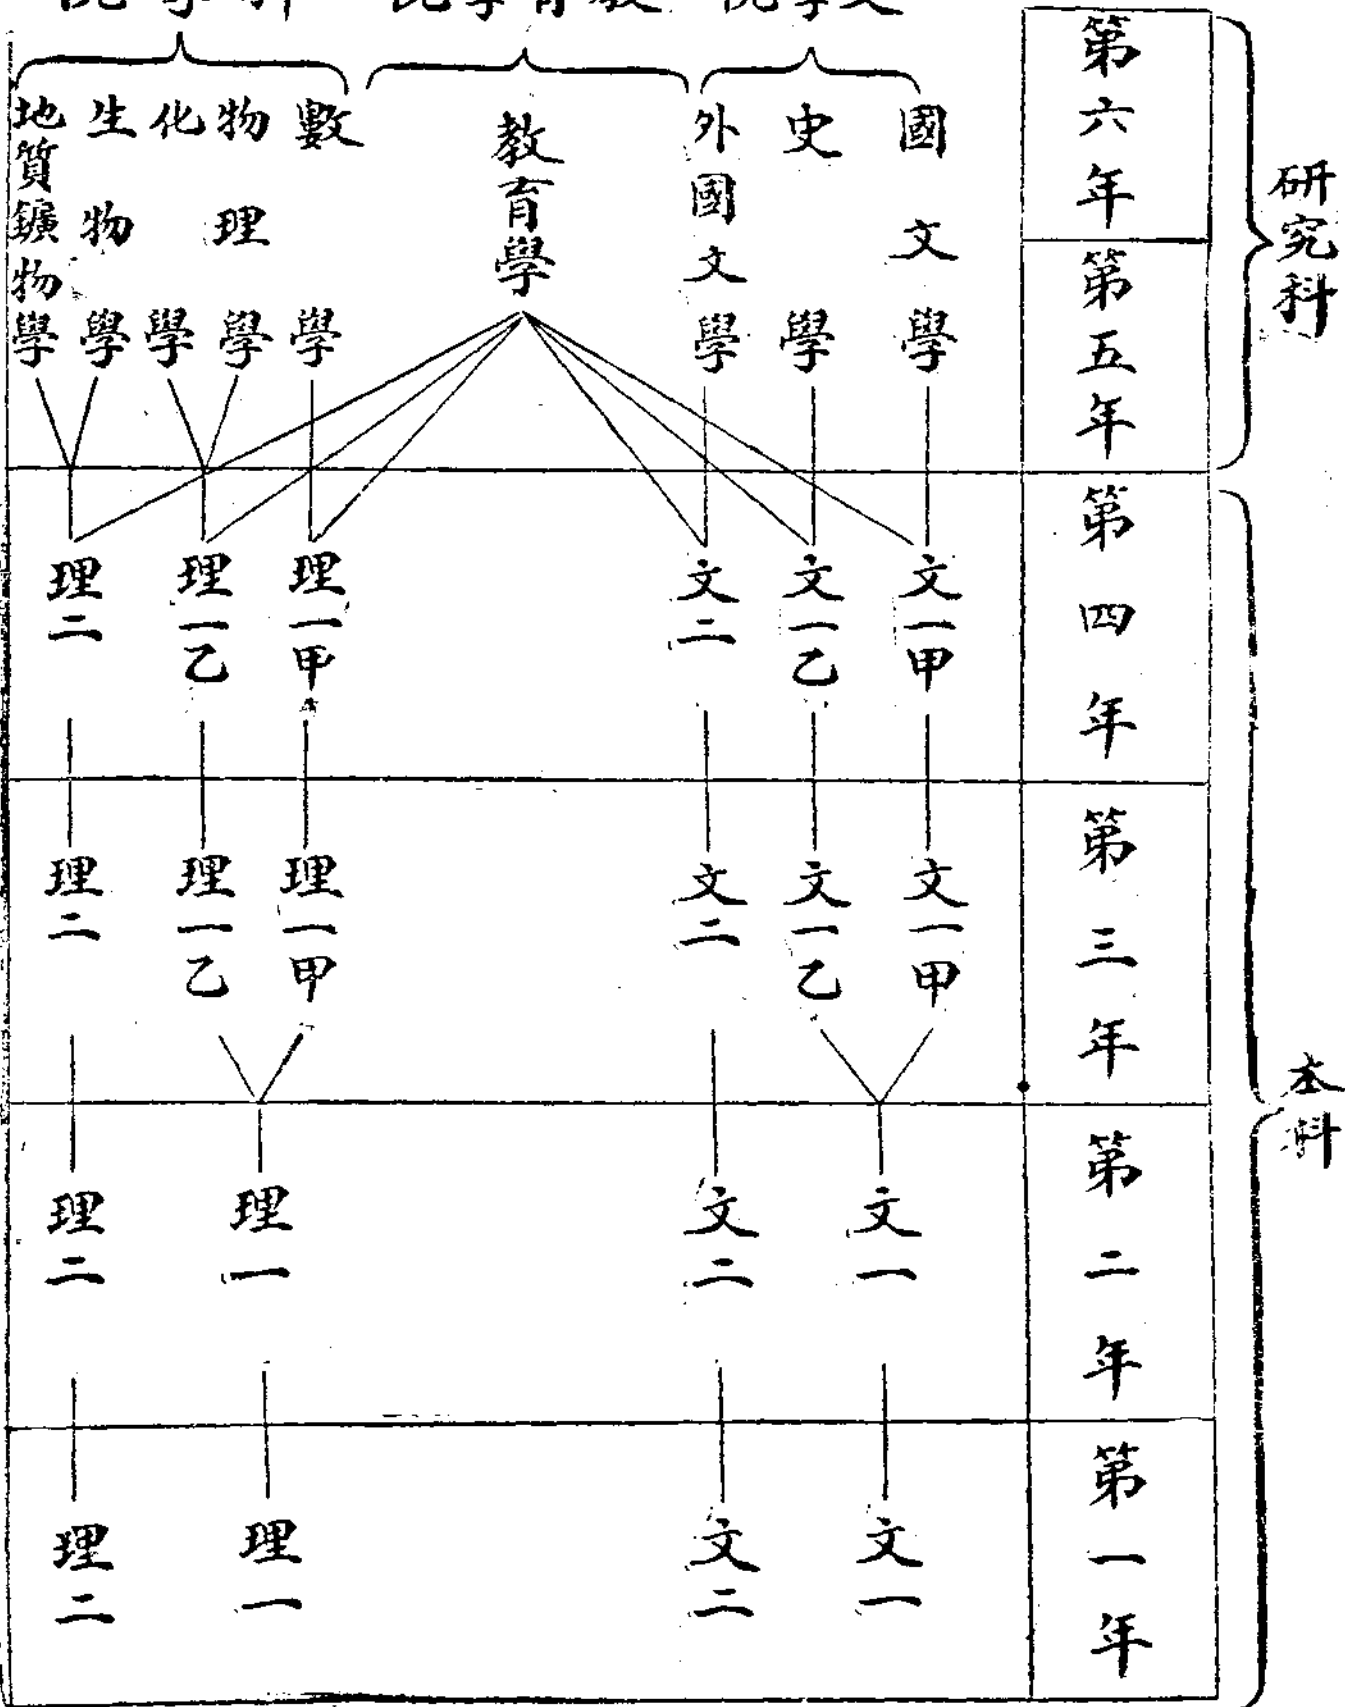 研究科
本科
第六年
第五年
第四年
第三年
第二年
第一年
國文學
史學
外國文學
教育學
數學
物理學
化學
生物學
地質鑛物學
文一甲
文一乙
文二
理一甲
理一乙
理二
文一甲
文一乙
文二
理一甲
理一乙
理二
文一
文二
理一
理二
文一
文二
理一
理二